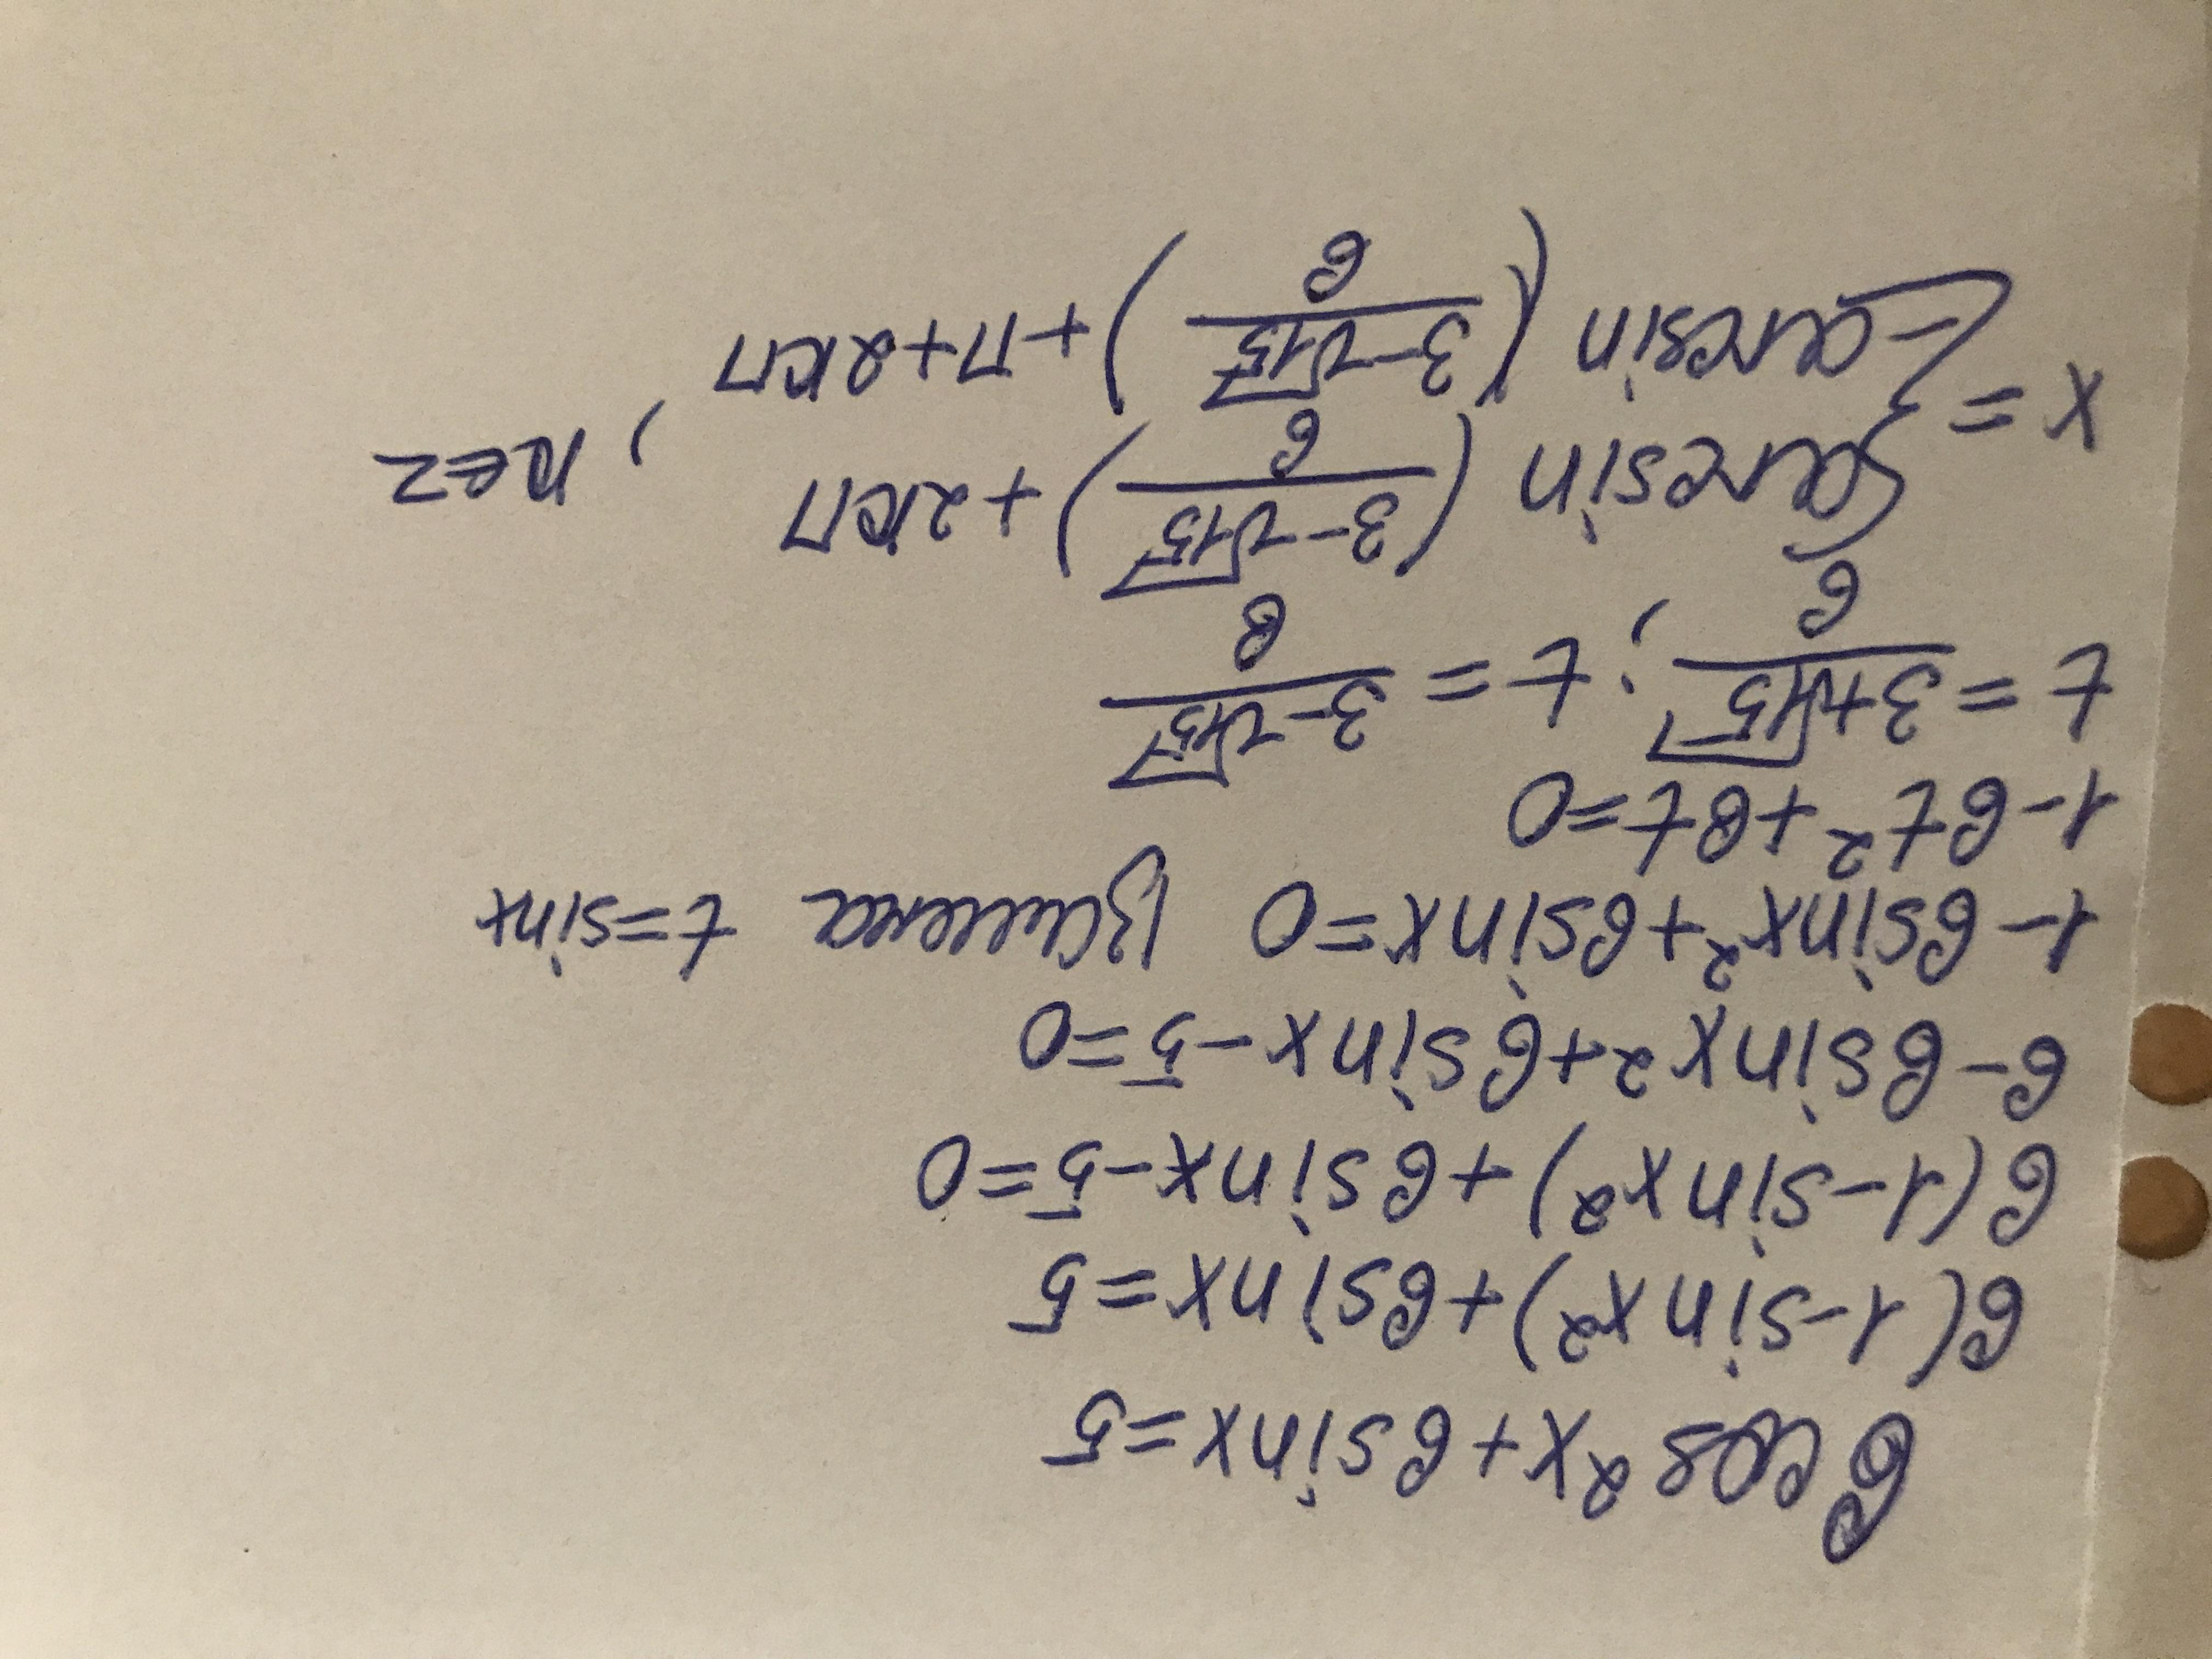 6cos²x+6sinx=5
6(1-sinx²)+6sinx=5
6(1-sinx²)+6sinx-5=0
6-6sinx²+6sinx-5=0
1-6sinx²+6sinx=0 Замена t=sinx
1-6t²+6t=0
t=\frac{3+√15}{6}; t=\frac{3-√15}{6}
x={arcsin(\frac{3-√15}{6})+2kπ
{-arcsin(\frac{3-√15}{6})+π+2kπ, k∈Z